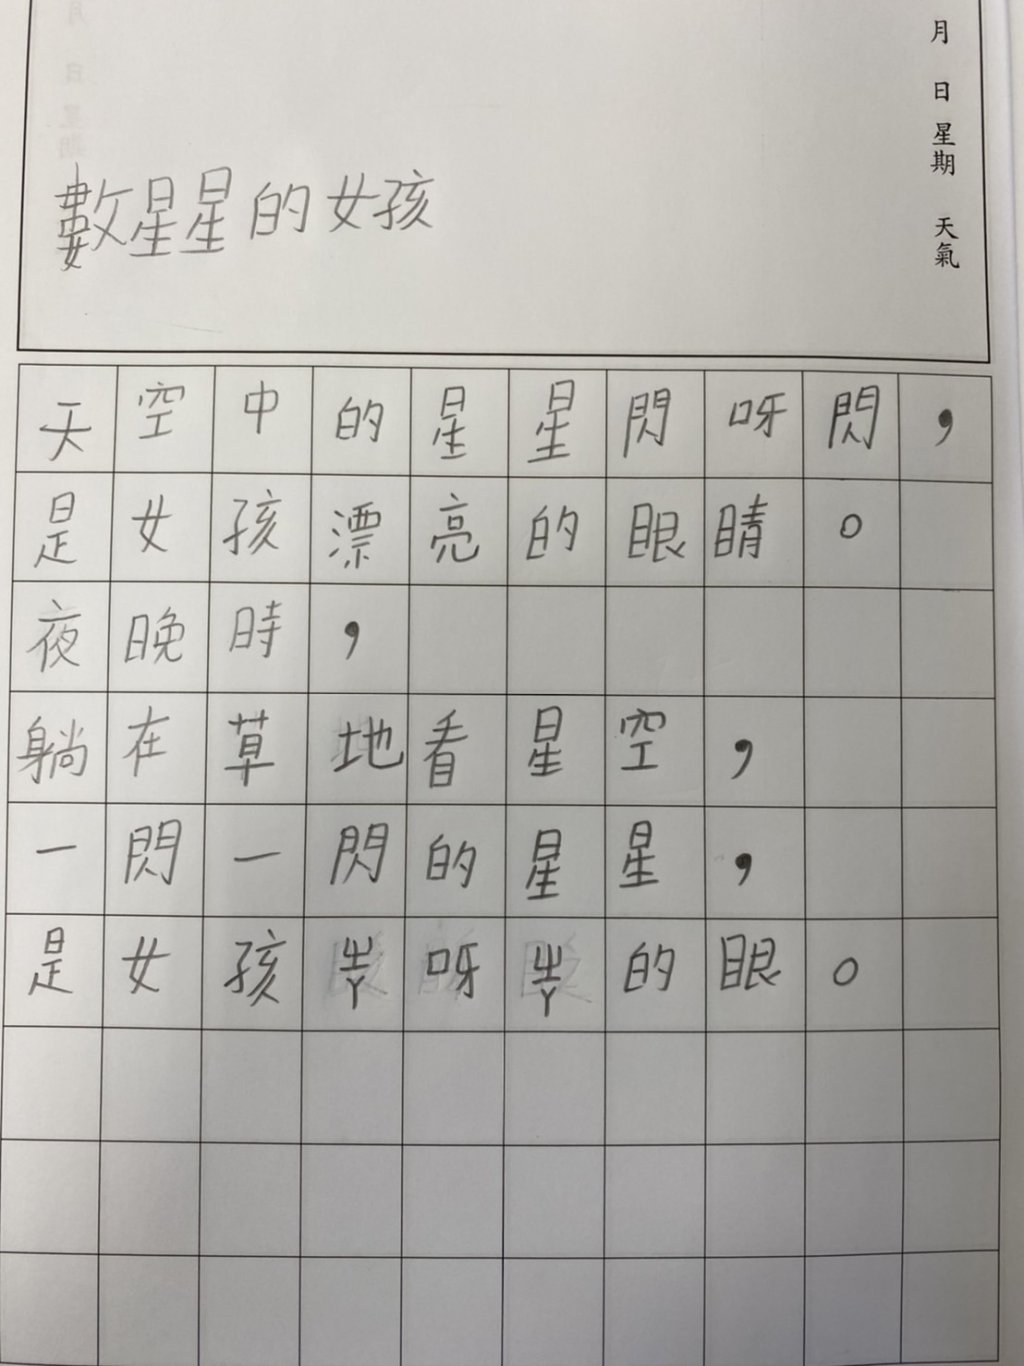 月 日 星期 天氣
數星星的女孩
天空中的星星閃呀閃，
是女孩漂亮的眼睛。
夜晚時，
躺在草地看星空，
一閃一閃的星星，
是女孩ㄓㄚ呀ㄓㄚ的眼。